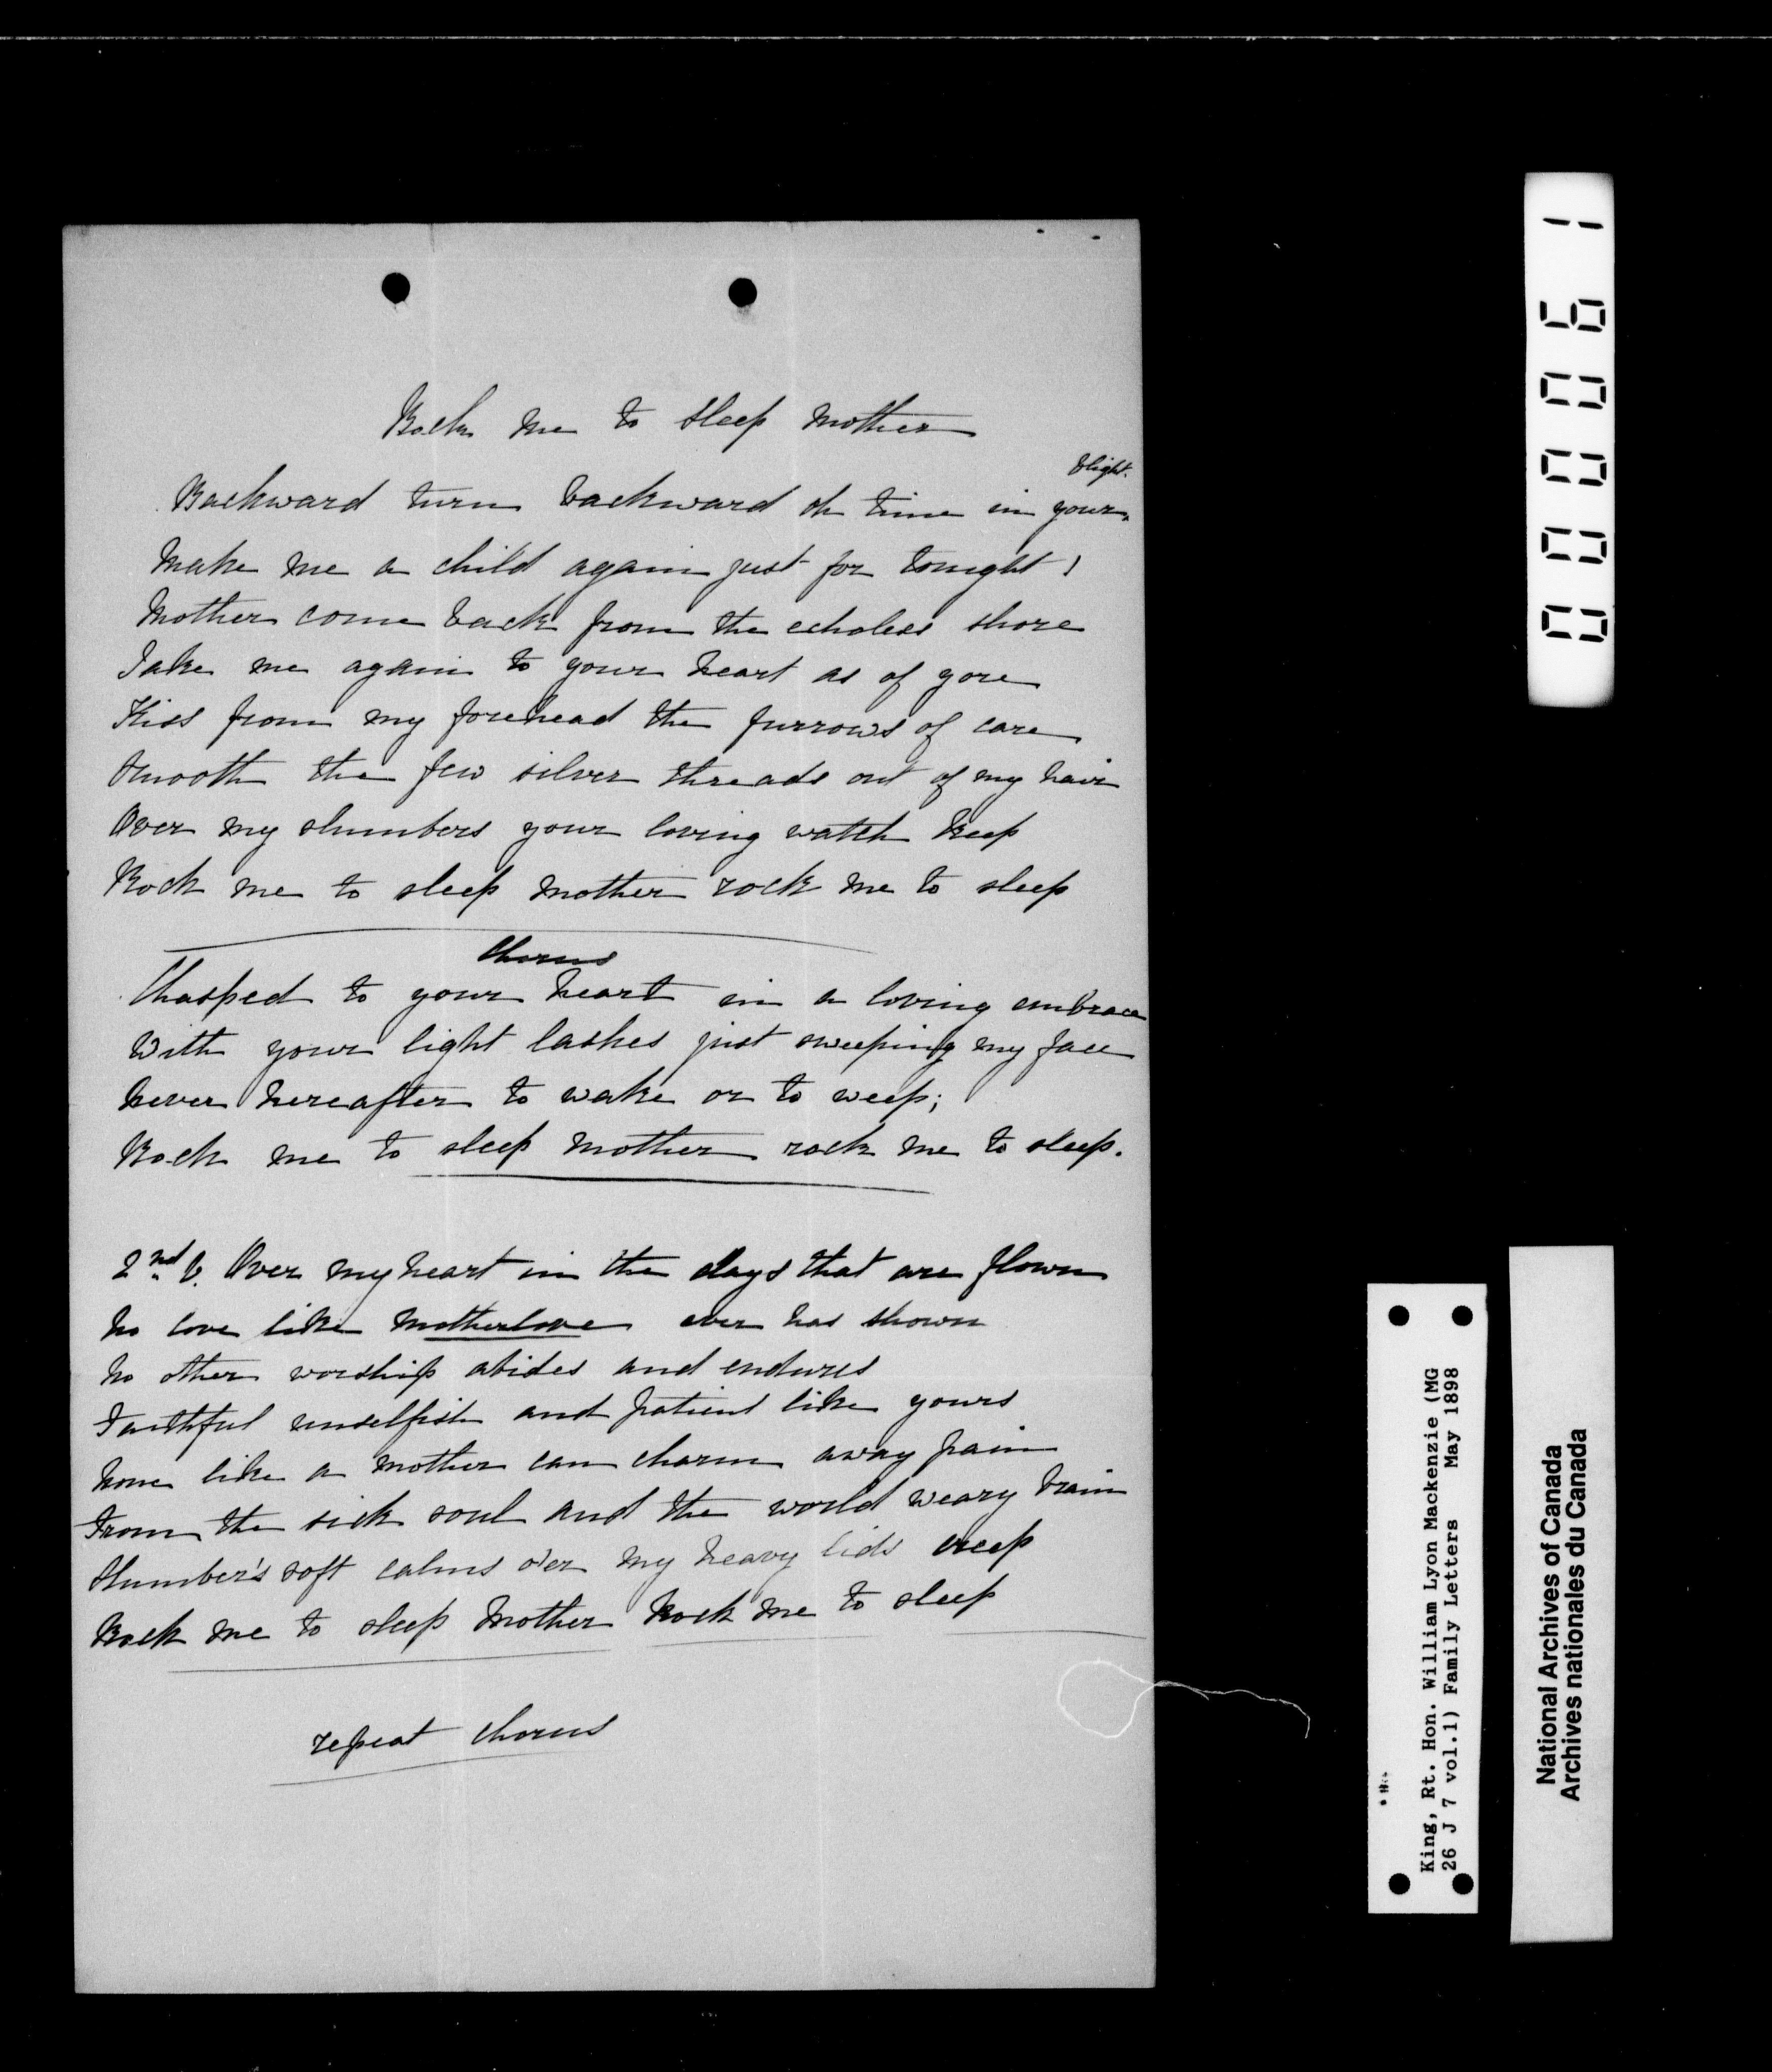 Rock me to sleep Mother
Backward turn backward oh time in your flight.
Make me a child again just for tonight!
Mother come back from the echoless shore
Take me again to your heart as of yore
Kiss from my forehead the furrows of care
Smooth the few silver threads out of my hair
Over my slumbers your loving watch keep
Rock me to sleep mother rock me to sleep
Chorus
Chasped to your heart in a loving embrace
With your light lashes just sweeping my face
Never hereafter to wake or to weep;
Rock me to sleep Mother rock me to sleep.
2nd V. Over my heart in the days that are flown
No love like motherlove ever has shown
No other worship abides and endures
Faithful unselfish and patient like yours
None like a mother can charm away pain
From the sick soul and the world weary brain
Slumber's soft calms o'er my heavy lids creep
Rock me to sleep Mother Rock me to sleep
repeat chorus
000061
King, Rt. Hon. William Lyon Mackenzie (MG
26 J 7 vol.1) Family Letters May 1898
National Archives of Canada
Archives nationales du Canada